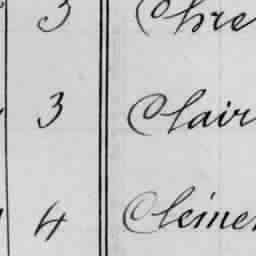 3 Chre
3 Clair
4 Clemen